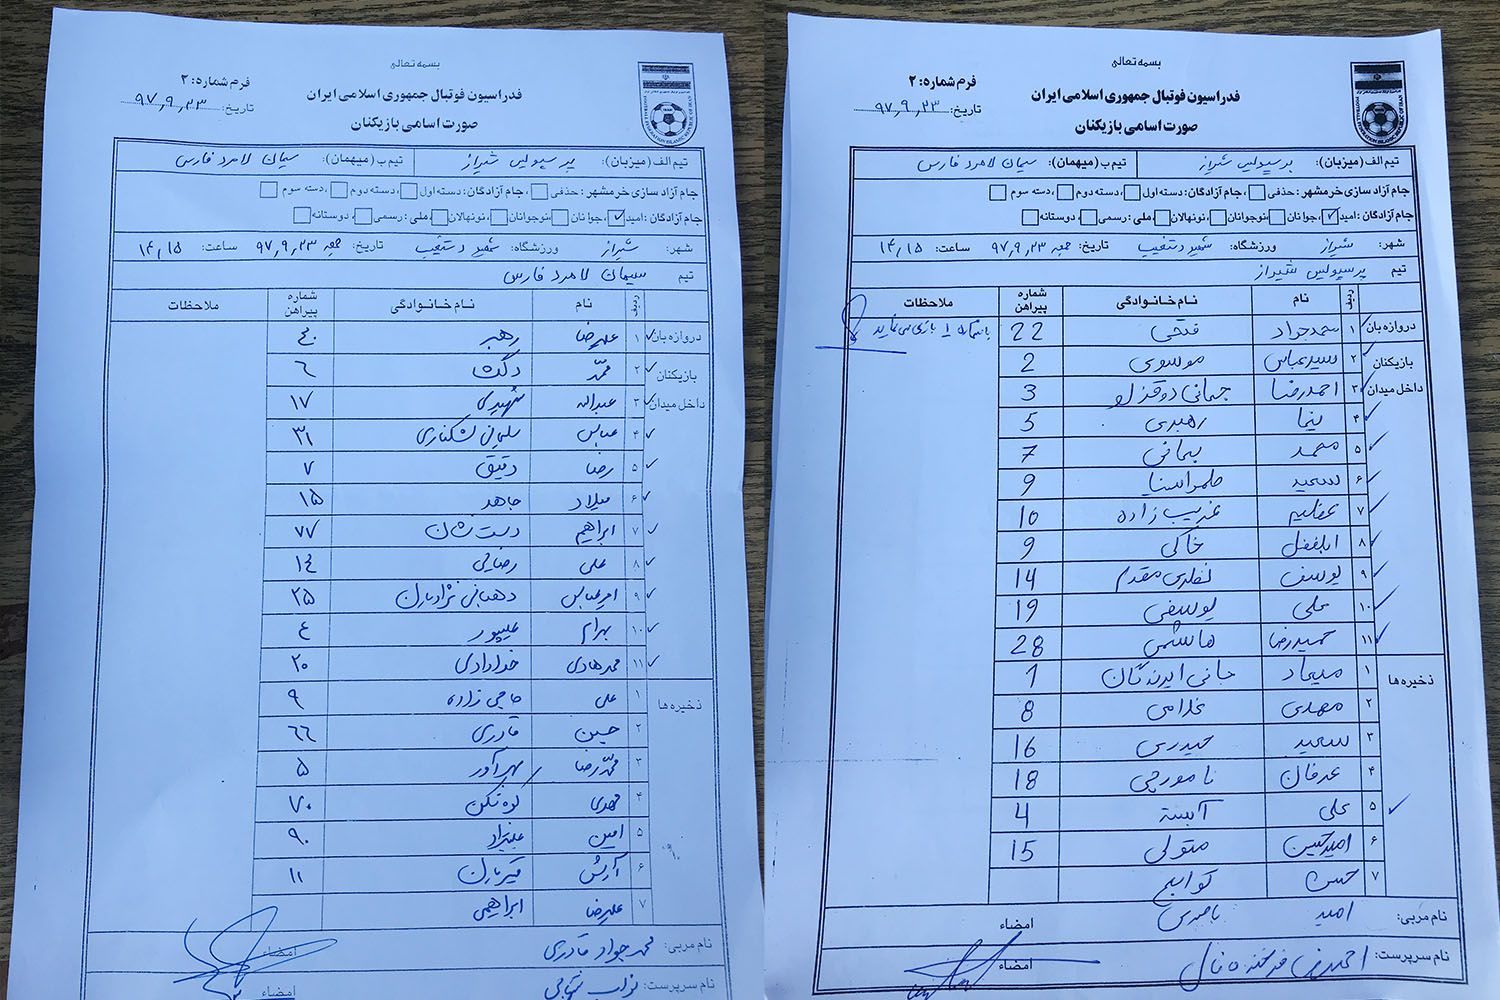 بسمه تعالی
فرم شماره: ۲
فدراسیون فوتبال جمهوری اسلامی ایران
تاریخ: ۹۷٫۹٫۲۳
صورت اسامی بازیکنان
تیم الف (میزبان): پرسپولیس شیراز تیم ب (میهمان): سیمان لامرد فارس
جام آزاد سازی خرمشهر: حذفی ، جام آزادگان: دسته اول ، دسته دوم ، دسته سوم
جام آزادگان: امید ✓ ، جوانان ، نوجوانان ، نونهالان ، ملی: رسمی ، دوستانه
شهر: شیراز ورزشگاه: شهید دستغیب تاریخ: جمعه ۹۷٫۹٫۲۳ ساعت: ۱۴٫۱۵
تیم سیمان لامرد فارس
ردیف نام نام خانوادگی شماره پیراهن ملاحظات
دروازه بان ✓ ۱ علیرضا رهبر ۴۰
بازیکنان ✓ ۲ محمد ۶
داخل میدان ✓ ۳ عبداله ۱۷
✓ ۴ عباس سلیمانی لشکناری ۳۱
✓ ۵ رضا دقیق ۷
✓ ۶ میلاد جاهد ۱۵
✓ ۷ ابراهیم دست نشان ۷۷
✓ ۸ علی رضایی ۱۴
✓ ۹ امیرعباس دهقانی نژادیان ۲۵
✓ ۱۰ بهرام علیپور ۴
✓ ۱۱ محمدهادی خدادادی ۲۰
ذخیره ها ۱ علی حاجی زاده ۹
۲ حسین قادری ۶۶
۳ محمدرضا مهرآور ۵
۴ مهدی کوه شکن ۷۰
۵ امین علینژاد ۹۰
۶ آرش ۱۱
۷ علیرضا ابراهیمی
نام مربی: محمدجواد قادری امضاء
نام سرپرست: امضاء
بسمه تعالی
فرم شماره: ۲
فدراسیون فوتبال جمهوری اسلامی ایران
تاریخ: ۹۷٫۹٫۲۳
صورت اسامی بازیکنان
تیم الف (میزبان): پرسپولیس شیراز تیم ب (میهمان): سیمان لامرد فارس
جام آزاد سازی خرمشهر: حذفی ، جام آزادگان: دسته اول ، دسته دوم ، دسته سوم
جام آزادگان: امید ✓ ، جوانان ، نوجوانان ، نونهالان ، ملی: رسمی ، دوستانه
شهر: شیراز ورزشگاه: شهید دستغیب تاریخ: جمعه ۹۷٫۹٫۲۳ ساعت: ۱۴٫۱۵
تیم پرسپولیس شیراز
ردیف نام نام خانوادگی شماره پیراهن ملاحظات
دروازه بان ✓ ۱ محمدجواد فتحی 22 با شماره ۱ بازی می نماید
بازیکنان ✓ ۲ سیدعباس موسوی 2
داخل میدان ✓ ۳ احمدرضا جهانی دوقزلو 3
✓ ۴ نیما رهبری 5
✓ ۵ محمد یمانی 7
✓ ۶ سعید 9
✓ ۷ عظیم غریب زاده 10
✓ ۸ ابلفضل خاکی 9
✓ ۹ یوسف نظری مقدم 14
✓ ۱۰ علی یوسفی 19
✓ ۱۱ حمیدرضا هاشمی 28
ذخیره ها ۱ میعاد جانی ایرندگان 1
۲ مهدی غلامی 8
۳ سعید حیدری 16
۴ عرفان نامورچی 18
✓ ۵ علی 4
۶ امیرحسین متولی 15
۷ حسن
نام مربی: امید ناصری امضاء
نام سرپرست: احمدرضا امضاء